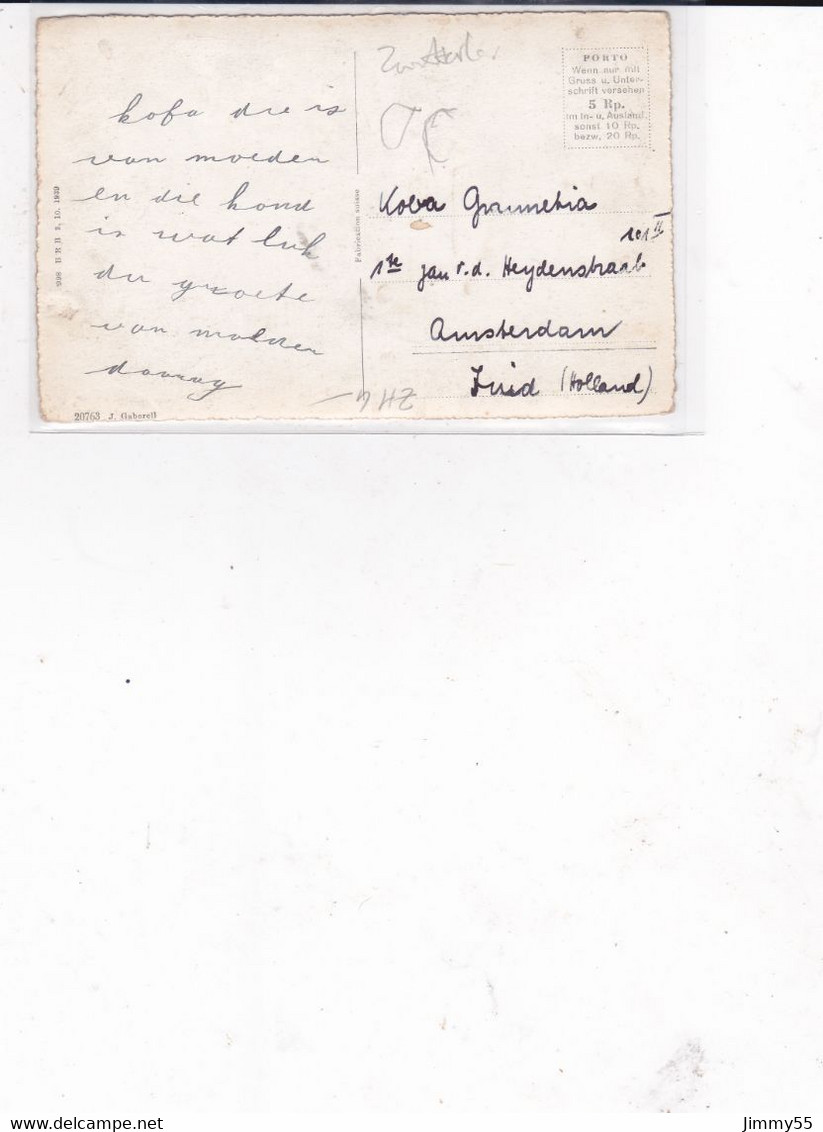 kofa die is
van moeder
en die hond
is wat luk
der groete
van moeder
998 B R B 3. 10. 1939
20763 J. Gaberell
Fabrication suisse
PORTO
Wenn nur mit
Gruss u. Unter-
schrift versehen
5 Rp.
im In- u. Ausland
sonst 10 Rp.
bezw. 20 Rp.
Koba
101 II
1te Jan v.d. Heydenstraat
Amsterdam
Zuid (Holland)
ZH4
delcampe.net
Jimmy55